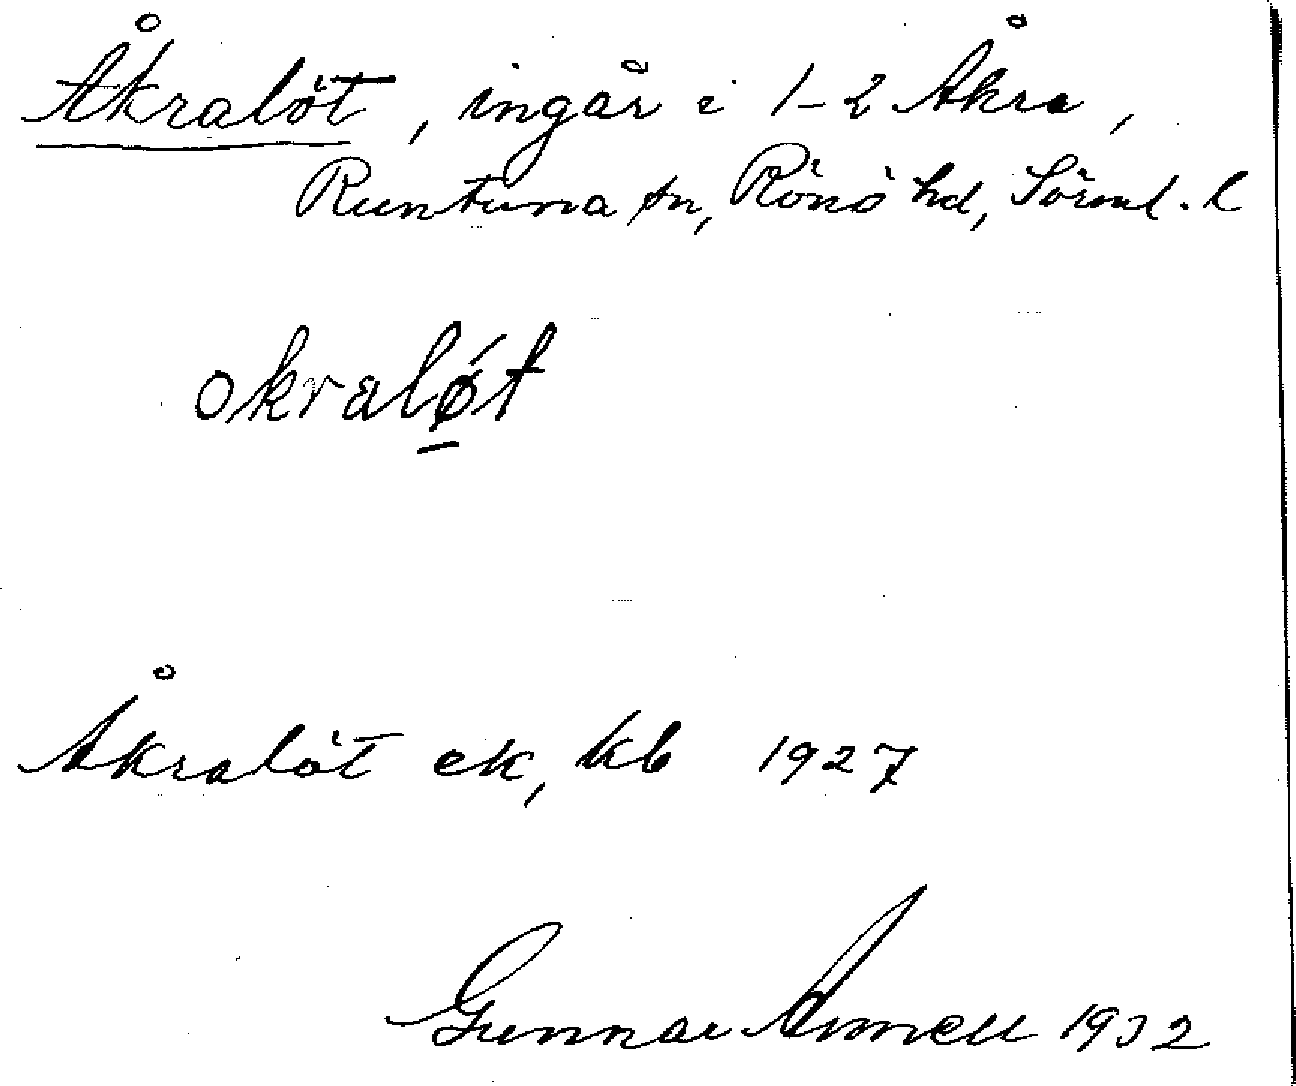 Åkralöt, ingår i 1-2 Åkra,
Runtuna sn, Rönö hd, Sörml. l
okraløt
Åkralöt ek, kb 1927
Gunnar Annell 1932